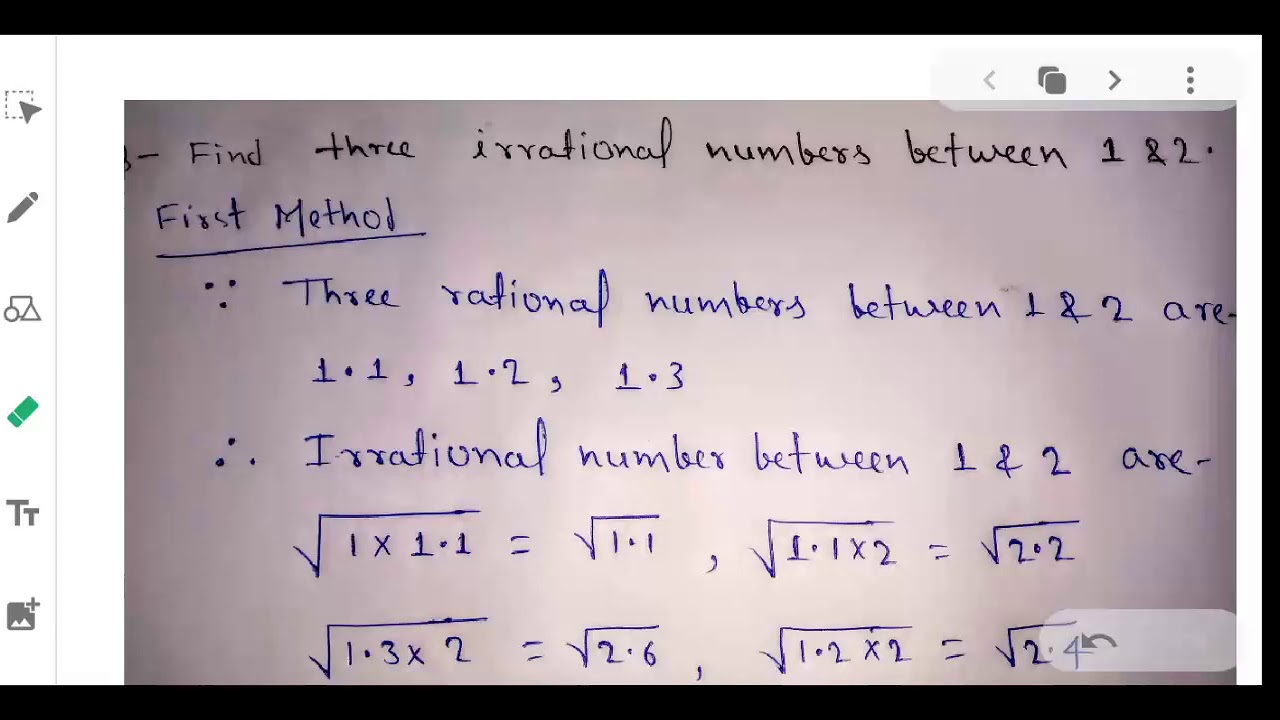 3- Find three irrational numbers between 1 & 2.
First Method
∵ Three rational numbers between 1 & 2 are-
1.1, 1.2, 1.3
∴ Irrational number between 1 & 2 are-
√(1 × 1.1) = √1.1 , √(1.1×2) = √2.2
√(1.3× 2) = √2.6 , √(1.2 × 2) = √2.4
Tт